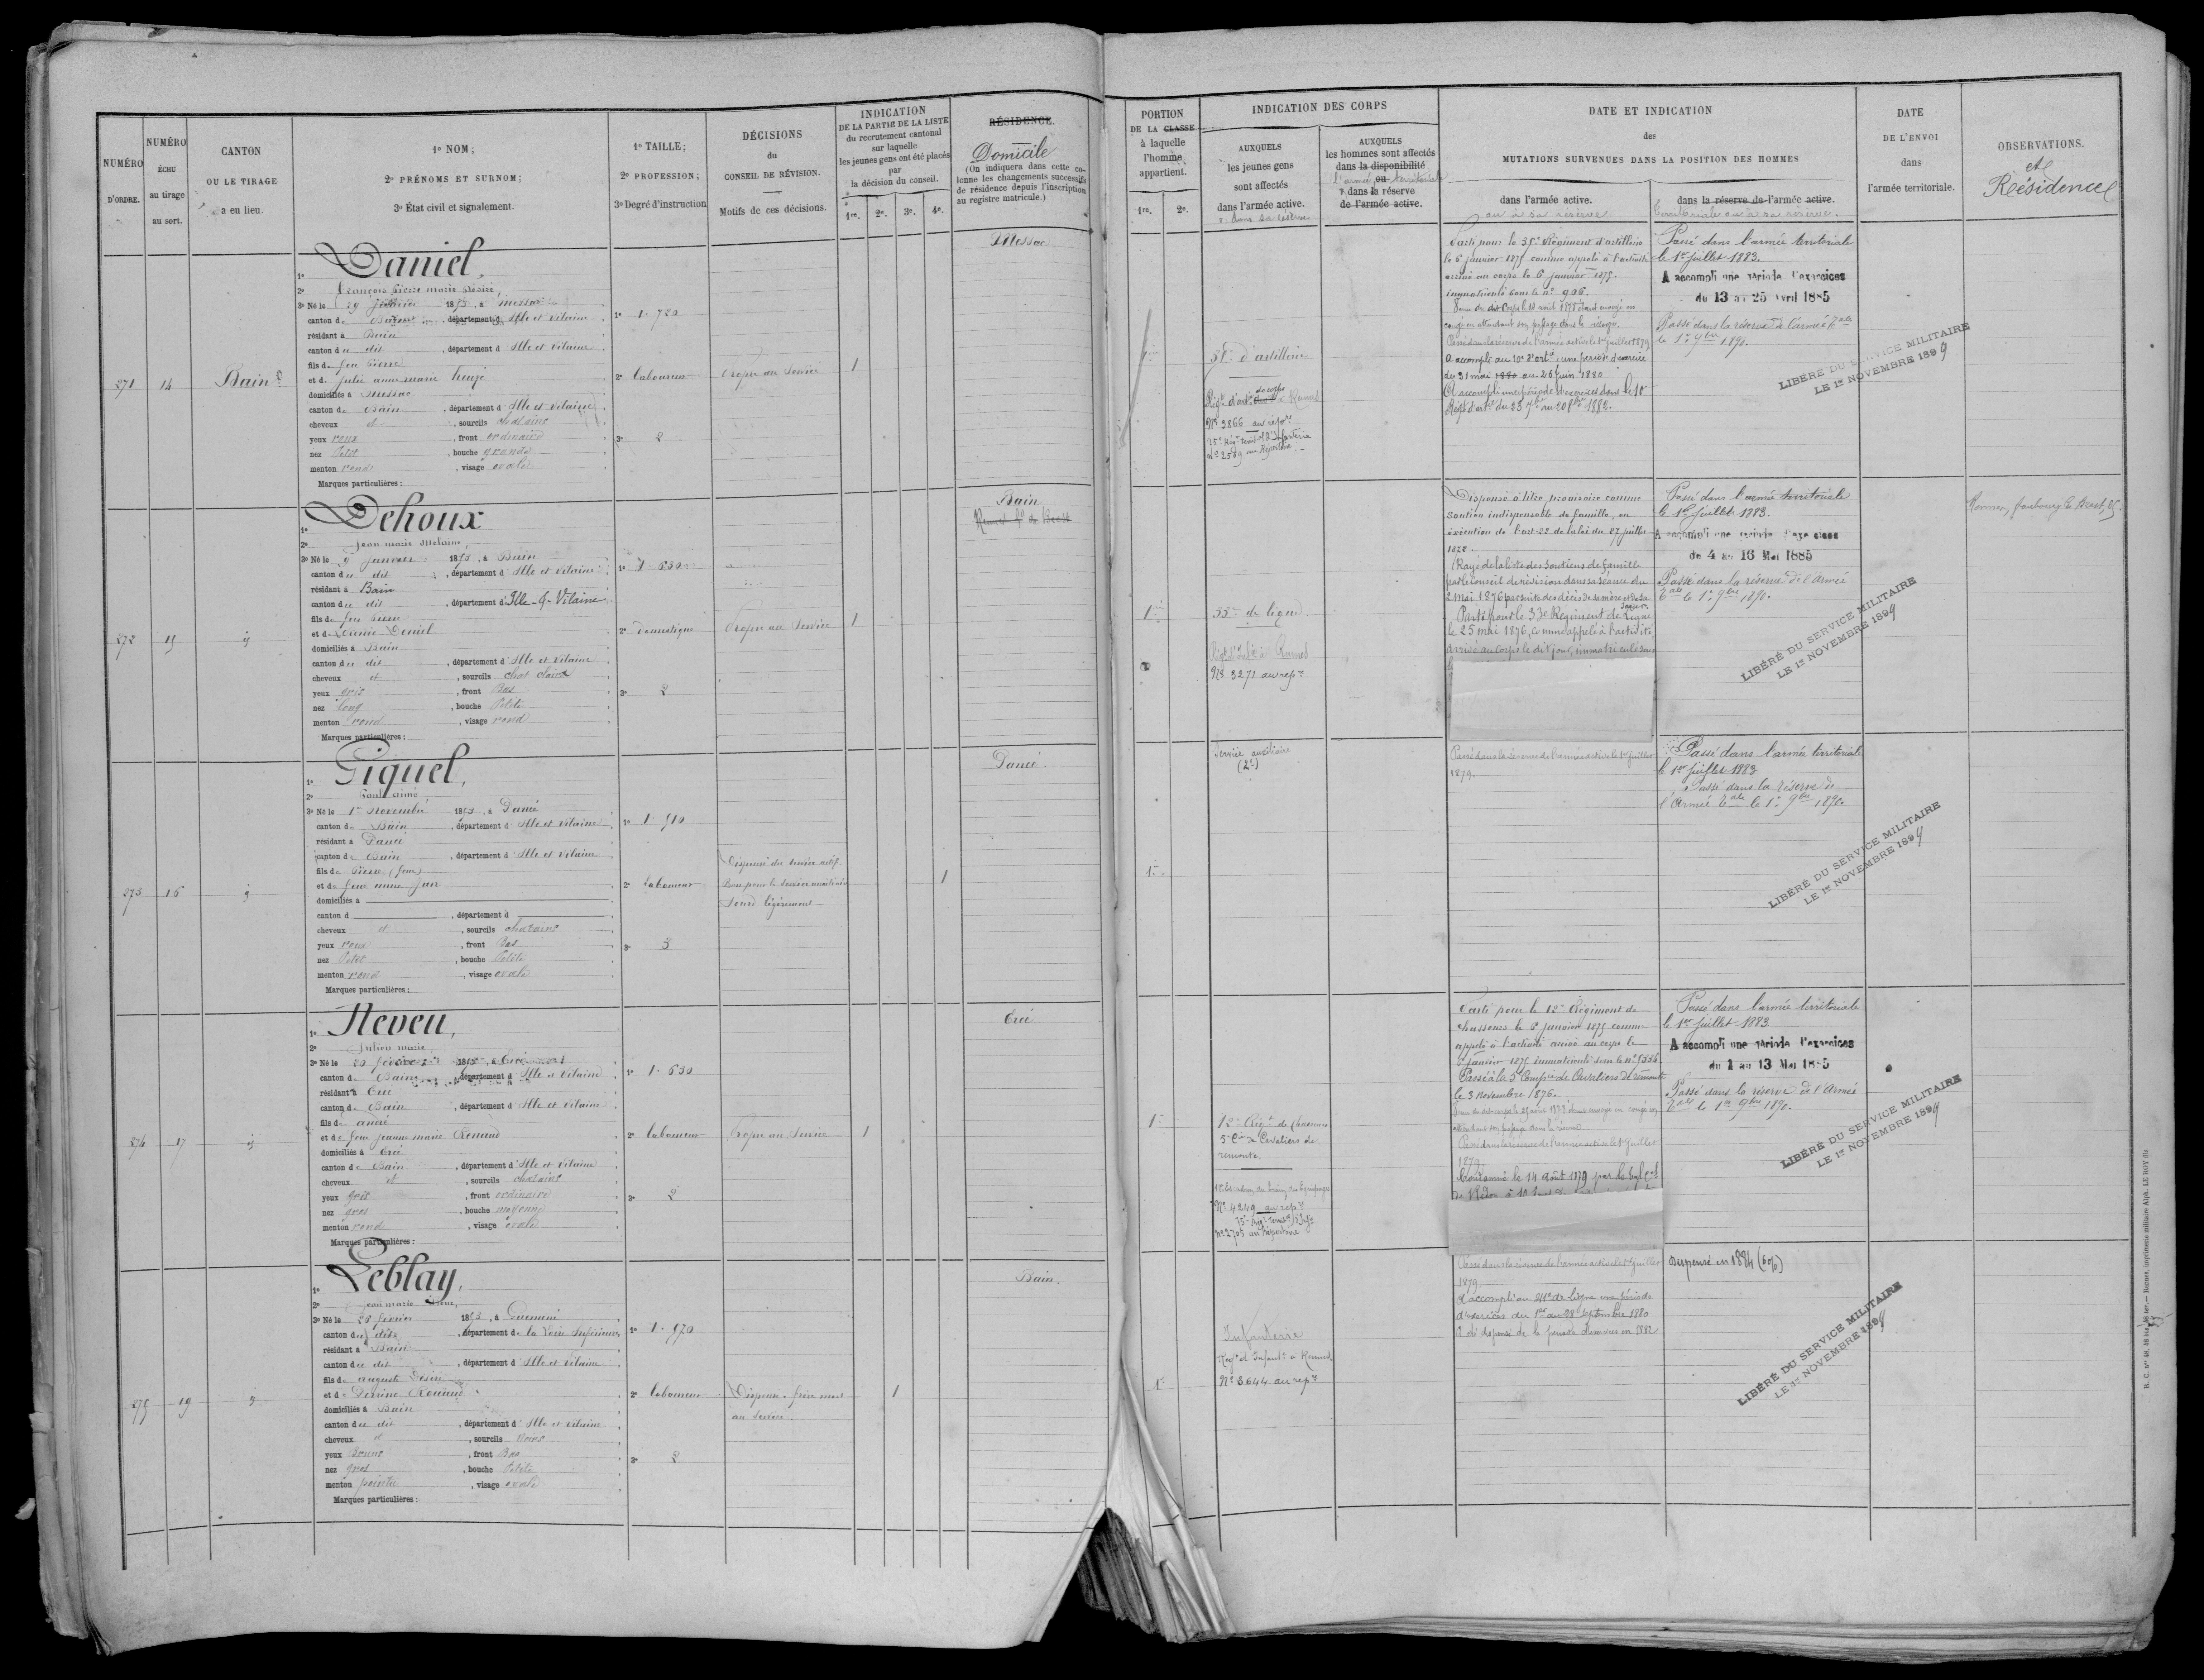 NUMÉRO
D'ORDRE.
NUMÉRO
ÉCHU
au tirage
au sort.
CANTON
OU LE TIRAGE
a eu lieu.
1º NOM;
2º PRÉNOMS ET SURNOM;
3º État civil et signalement.
1º TAILLE;
2º PROFESSION;
3º Degré d'instruction
DÉCISIONS
du
CONSEIL DE RÉVISION.
Motifs de ces décisions.
INDICATION
DE LA PARTIE DE LA LISTE
du recrutement cantonal
sur laquelle
les jeunes gens ont été placés
par
la décision du conseil.
1re. 2e. 3e. 4e.
RÉSIDENCE.
Domicile
(On indiquera dans cette co-
lonne les changements successifs
de résidence depuis l'inscription
au registre matricule.)
PORTION
DE LA CLASSE
à laquelle
l'homme
appartient.
1re. 2e.
INDICATION DES CORPS
AUXQUELS
les jeunes gens
sont affectés
dans l'armée active.
ou dans sa réserve
AUXQUELS
les hommes sont affectés
dans la disponibilité
ou
l'armée territoriale
dans la réserve
de l'armée active.
DATE ET INDICATION
des
MUTATIONS SURVENUES DANS LA POSITION DES HOMMES
dans l'armée active.
ou à sa réserve
dans la réserve de l'armée active.
territoriale ou à sa réserve.
DATE
DE L'ENVOI
dans
l'armée territoriale.
OBSERVATIONS.
et
Résidence
271
14
Bain
1º Daniel,
2º François Pierre Marie Désiré,
3º Né le 1853, à Messac
canton de Bain, département d'Ille et Vilaine
résidant à Bain
canton du dit, département d'Ille et Vilaine
fils de feu Pierre
et de Julie Anne Marie
domiciliés à Messac
canton de Bain, département d'Ille et Vilaine
cheveux et, sourcils chatains
yeux roux, front ordinaire
nez Petit, bouche grande
menton rond, visage ovale
Marques particulières:
1º 1.720
2º laboureur
3º 2
Propre au Service
1
Messac
d'artillerie
Nº 3866 au répre
75e Régt territal d'Infanterie
nº 2589 au Répertoire
Parti pour le 35e Régiment d'artillerie
le 6 janvier 1875 comme appelé à l'activité
arrivé au corps le 6 janvier 1875.
immatriculé sous le nº 906.
Passé dans la réserve de l'armée active le 1er juillet 1879
A accompli au 10e d'artie une période d'exercice
du 31 mai 1880 au 26 juin 1880
A accompli une période d'exercices dans le 10e
Régt d'artie du 23 7bre au 20 8bre 1882.
Passé dans l'armée territoriale
le 1er juillet 1883.
A accompli une période d'exercices
du 13 au 25 avril 1885
Passé dans la réserve de l'armée Tale
le 1er 9bre 1890.
LIBÉRÉ DU SERVICE MILITAIRE
LE 1er NOVEMBRE 1899
272
15
id
1º Dehoux
2º Jean Marie
3º Né le 9 janvier 1853, à Bain
canton du dit, département d'Ille et Vilaine
résidant à Bain
canton du dit, département d'Ille-&-Vilaine
fils de feu Pierre
et de Daniel
domiciliés à Bain
canton du dit, département d'Ille et Vilaine
cheveux et, sourcils chat. clairs
yeux gris, front Bas
nez long, bouche Petite
menton rond, visage rond
Marques particulières:
1º 1.630
2º domestique
3º 2
Propre au Service
1
Bain
1
33e de ligne.
Régt d'Infie à Rennes
Nº 3271 au repre
Dispensé à titre provisoire comme
soutien indispensable de famille, en
exécution de l'art. 22 de la loi du 27 juillet
1872.
Rayé de la liste des soutiens de famille
par le conseil de révision dans sa séance du
2 mai 1876 par suite des décès de sa mère et de sa
soeur.
Parti pour le 33e Régiment de Ligne
le 25 mai 1876, comme appelé à l'activité,
arrivé au corps le dit jour, immatriculé sous
Passé dans l'armée territoriale
le 1er juillet 1883.
A accompli une période d'exercices
du 4 au 16 Mai 1885
Passé dans la réserve de l'Armée
Tale le 1er 9bre 1890.
LIBÉRÉ DU SERVICE MILITAIRE
LE 1er NOVEMBRE 1899
Rennes, faubourg de Brest,
273
16
id
1º Giquel,
2º Paul Aimé
3º Né le 1er Novembre 1853, à Pancé
canton de Bain, département d'Ille et Vilaine
résidant à Pancé
canton de Bain, département d'Ille et Vilaine
fils de Pierre (feu)
et de feue Anne Jan
domiciliés à
canton d, département d
cheveux et, sourcils chatains
yeux roux, front Bas
nez Petit, bouche Petite
menton rond, visage ovale
Marques particulières:
1º 1.510
2º laboureur
3º 3
Dispensé du service actif
Bon pour le service auxiliaire
Sourd légèrement
1
Pancé
1
Service auxiliaire
(2e)
Passé dans la réserve de l'armée active le 1er juillet
1879.
Passé dans l'armée territoriale
le 1er juillet 1883
Passé dans la réserve de
l'Armée Tale le 1er 9bre 1890.
LIBÉRÉ DU SERVICE MILITAIRE
LE 1er NOVEMBRE 1899
274
17
id
1º Neveu,
2º Julien Marie,
3º Né le 20 février 1853, à Ercé
canton de Bain, département d'Ille et Vilaine
résidant à Ercé
canton de Bain, département d'Ille et Vilaine
fils de André
et de feue Jeanne Marie Renaud
domiciliés à Ercé
canton de Bain, département d'Ille et Vilaine
cheveux et, sourcils chatains
yeux gris, front ordinaire
nez gros, bouche moyenne
menton rond, visage ovale
Marques particulières:
1º 1.630
2º laboureur
3º 2
Propre au Service
1
Ercé
1
12e Régt de Chasseurs
5e Cie de Cavaliers de
remonte.
Nº 4249 au repre
75e Régt territal d'Infie
nº 2705 au Répertoire
Parti pour le 12e Régiment de
chasseurs le 6 janvier 1875 comme
appelé à l'activité arrivé au corps le
janvier 1875 immatriculé sous le nº
Passé à la 5e Compie de Cavaliers de remonte
le 3 novembre 1876.
Passé dans la réserve de l'armée active le 1er juillet
1879
Condamné le 14 Août 1879 par le
de Redon à
Passé dans l'armée territoriale
le 1er juillet 1883
A accompli une période d'exercices
du 1 au 13 Mai 1885
Passé dans la réserve de l'Armée
Tale le 1er 9bre 1890.
LIBÉRÉ DU SERVICE MILITAIRE
LE 1er NOVEMBRE 1899
275
19
id
1º Leblay,
2º Jean Marie
3º Né le 28 février 1853, à Guémené
canton du dit, département de la Loire Inférieure
résidant à Bain
canton du dit, département d'Ille et Vilaine
fils de Auguste Désiré
et de
domiciliés à Bain
canton du dit, département d'Ille et Vilaine
cheveux et, sourcils Noirs
yeux Bruns, front Bas
nez gros, bouche Petite
menton pointu, visage ovale
Marques particulières:
1º 1.570
2º laboureur
3º 2
Dispensé. frère mort
au service.
1
Bain.
1
Infanterie
Regt d'Infantie à Rennes
Nº 3644 au repre
Passé dans la réserve de l'armée active le 1er juillet
1879.
A accompli au 41e de ligne une période
d'exercices du 1er au 28 Septembre 1880
A été dispensé de la période d'exercices en 1882
Dispensé en 1884 (6%)
LIBÉRÉ DU SERVICE MILITAIRE
LE 1er NOVEMBRE 1899